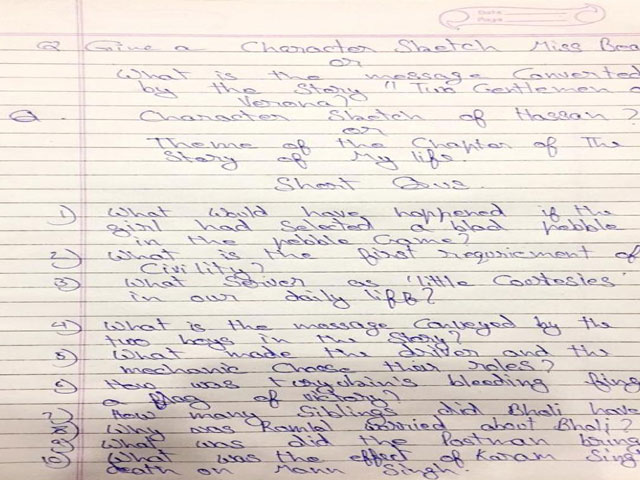 Date
Page
Q Give a Character Sketch Miss Bea
or
What is the message Converted
by the Story "Two Gentlemen o
Verona?
Q. Character Sketch of Hassan?
or
Theme of the Chapter of The
Story of My life.
Short Qus.
1) What would have happened if the
girl had Selected a blad pebble
in the pebble Game?
2) What is the first requriement of
Civility?
3) What Server as "little Coortosies
in our daily life?
4) What is the message Conveyed by the
two boys in the Story?
5) What made the driver and the
mechanic Choose their roles?
6 How was bleeding fing
a flag of victory?
7) How many Siblings did Bholi have
8) Why was Ramlal worried about Bholi?
9) What was did the Postman bring
10) What was the effect of Karam Sing
death on Mann Singh.